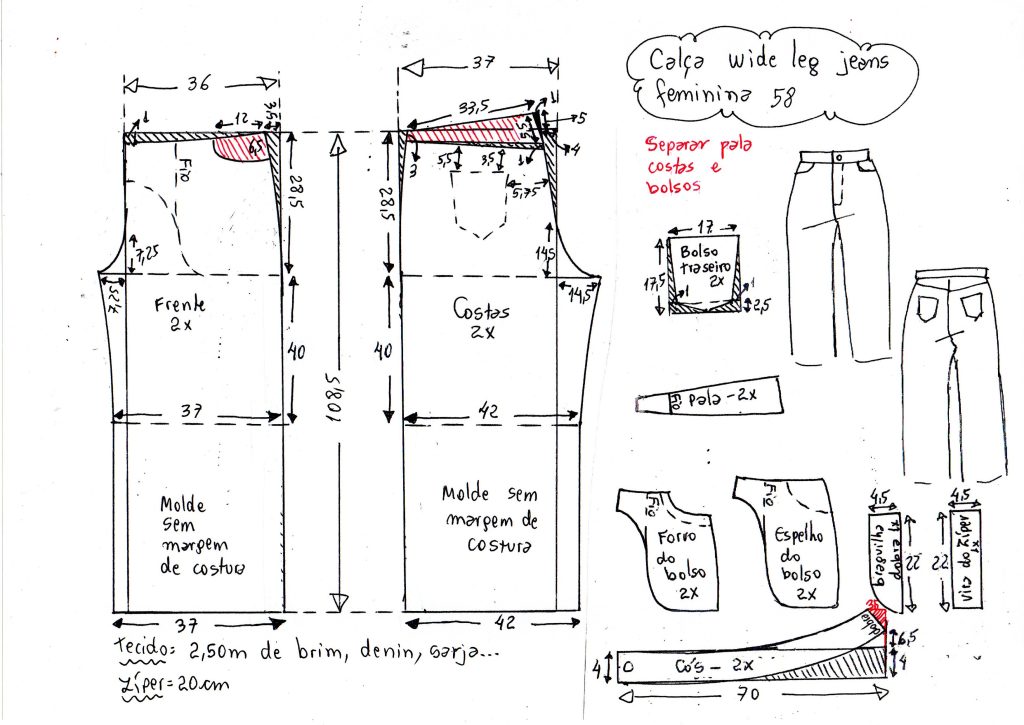 Calça wide leg jeans
feminina 58
Separar pala
costas e
bolsos
36
1
12
3,5
6,5
Fio
28,5
7,25
7,25
Frente
2x
40
37
Molde
sem
margem
de costura
37
108,5
37
33,5
5
4
3
1
5,5
3,5
5,75
28,5
14,5
14,5
Costas
2x
40
42
Molde sem
margem de
costura
42
17
Bolso
traseiro
2x
17,5
1
1
2,5
Fio
Pala - 2x
Fio
Forro
do
bolso
2x
Fio
Espelho
do
bolso
2x
4,5
braguilha
dobra x1
22
4,5
Vira do Zíper
x1
22
4
Cós - 2x
70
6,5
4
tecido= 2,50m de brim, denin, sarja...
Zíper= 20 cm